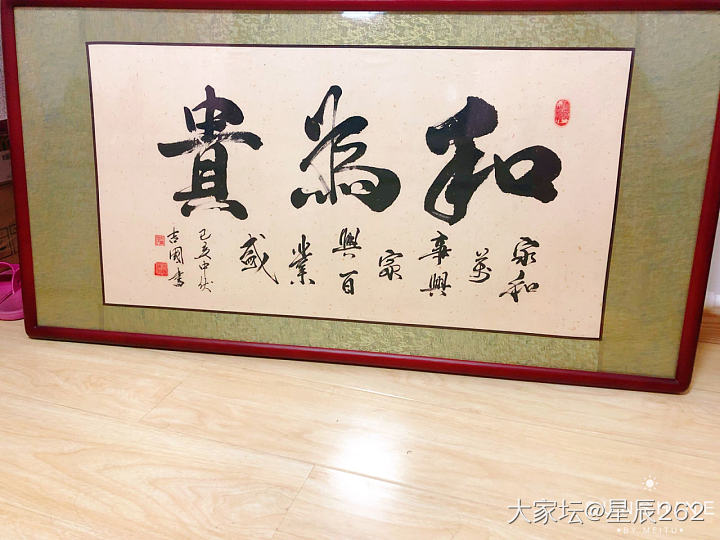 和為貴
家和
萬
事興
家
興百
業
盛
己亥中伏
吉國書
大家坛@星辰262
BY MEITU